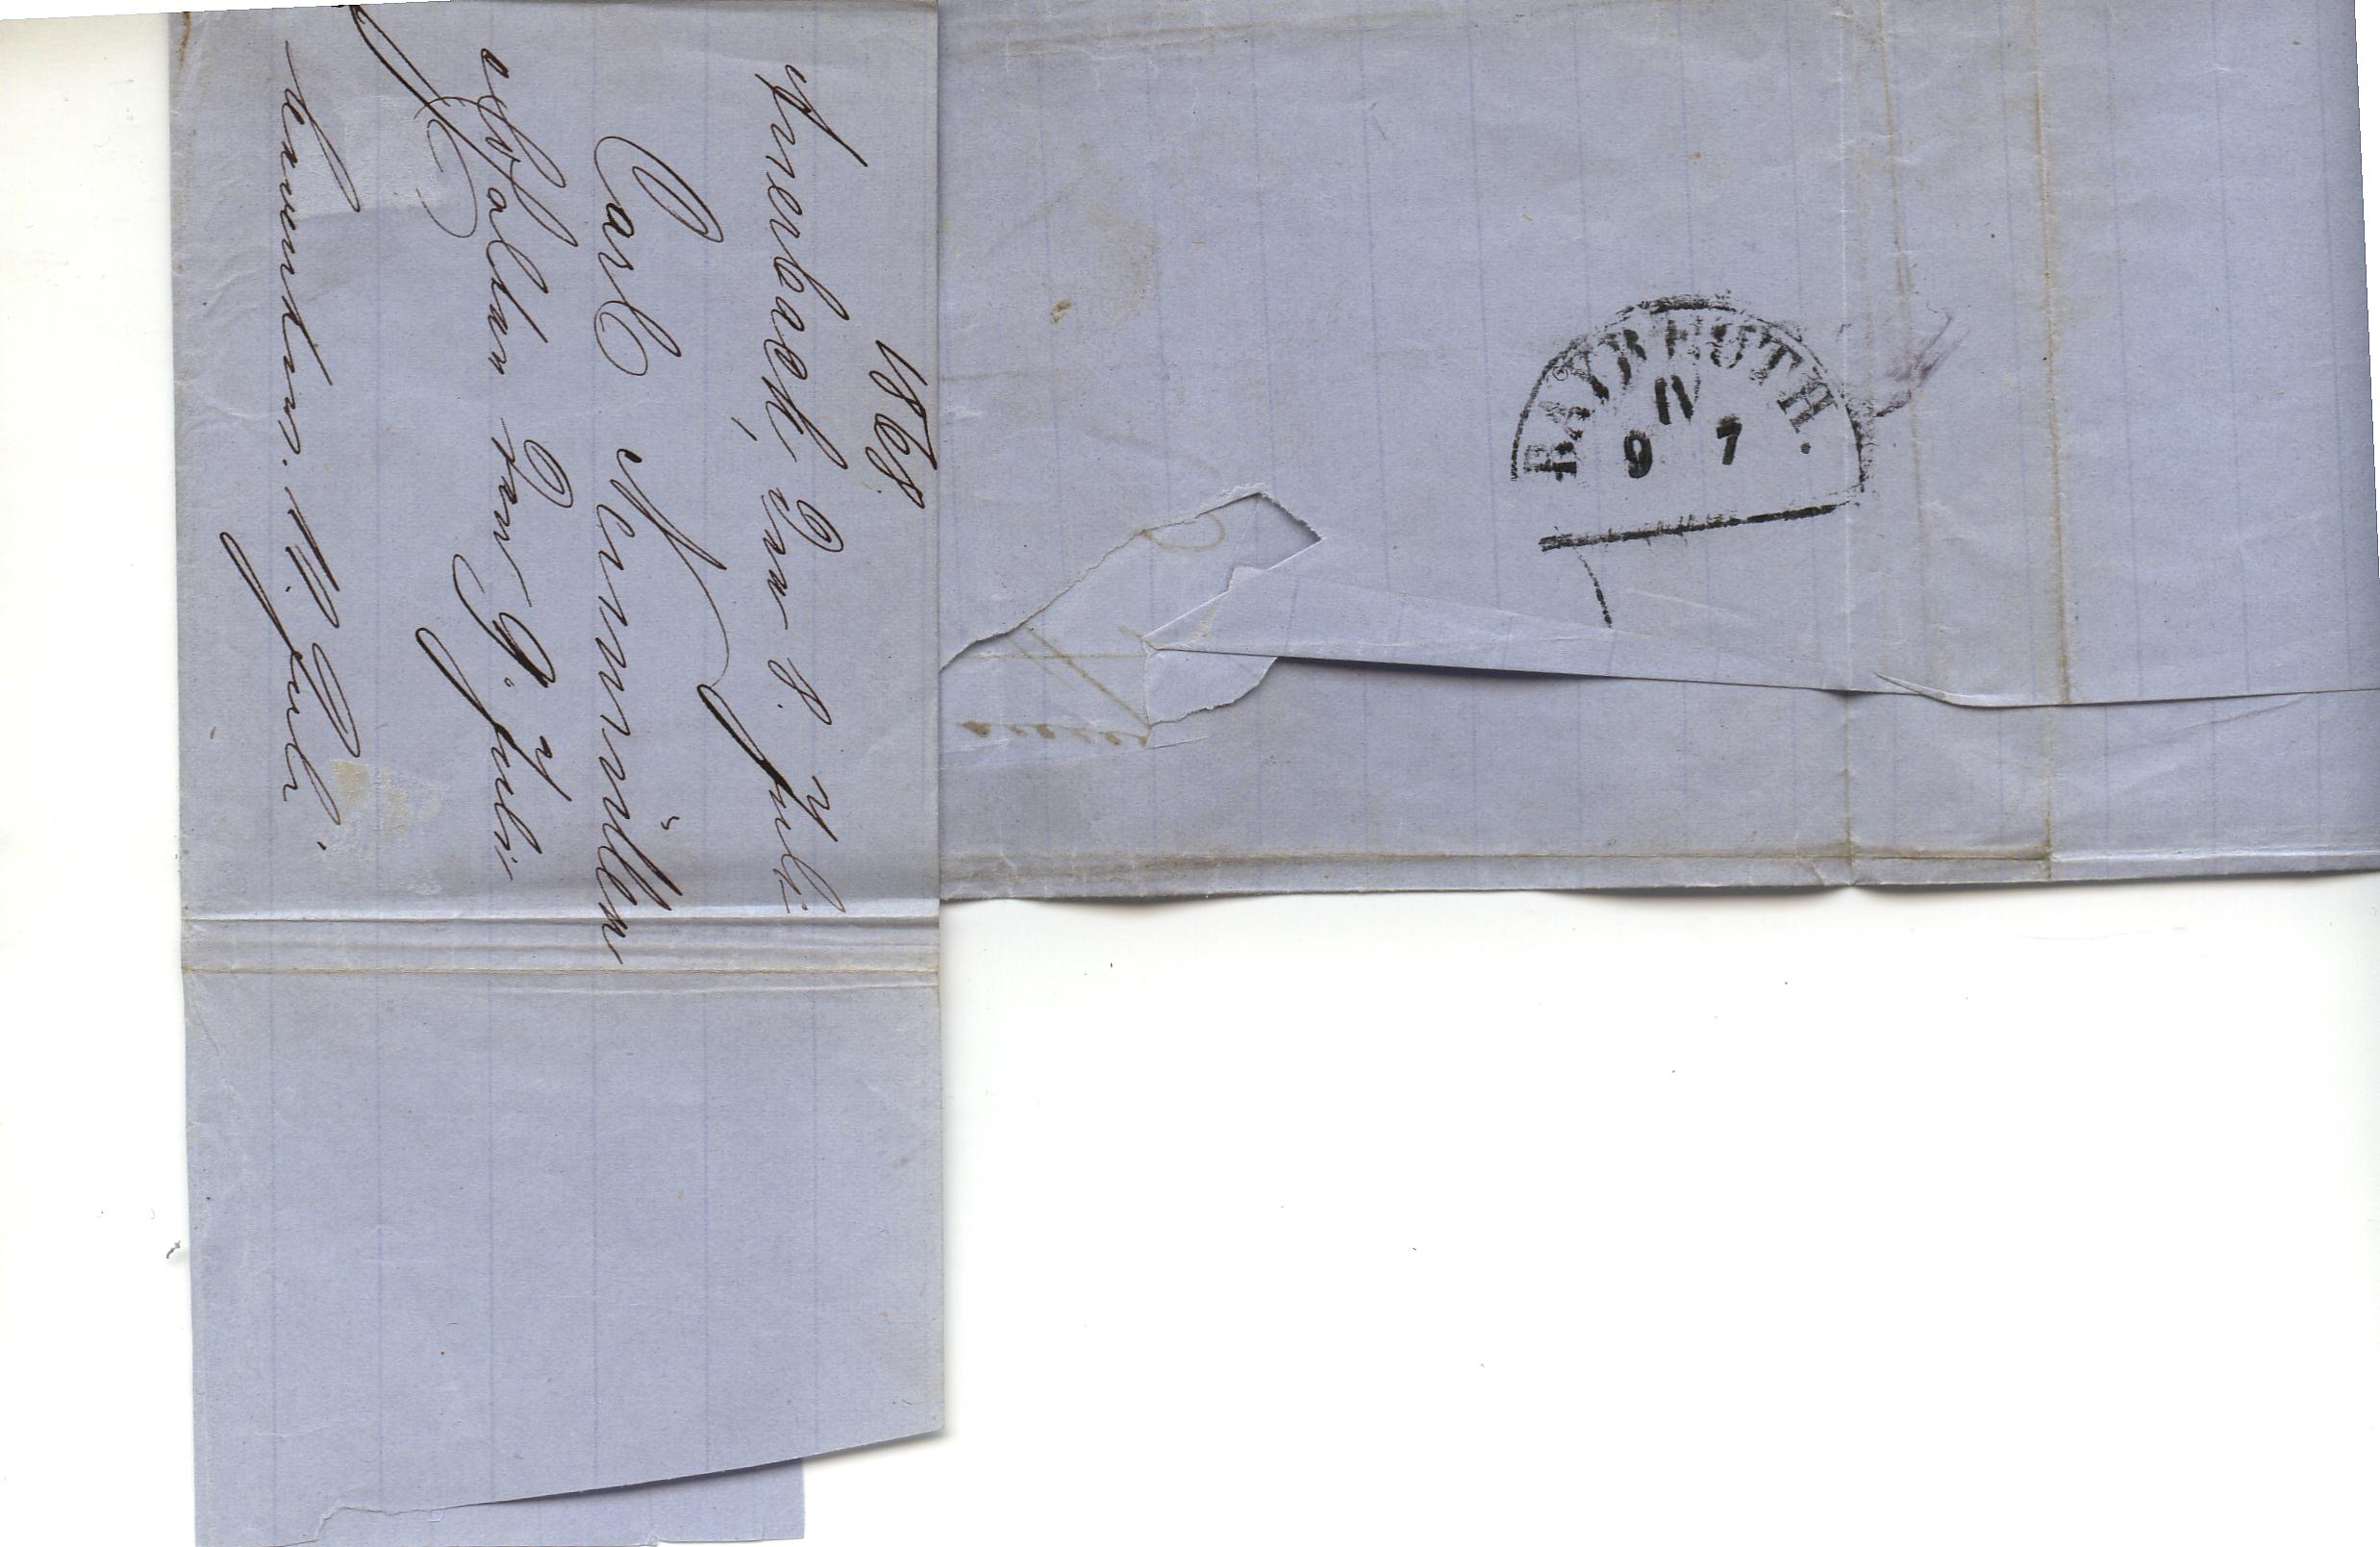 1868
Auerbach, den 8. Juli
Carl Neumüller
erhalten den 9. Juli
beantw. 11. Juli.
BAYREUTH.
IV
9 7